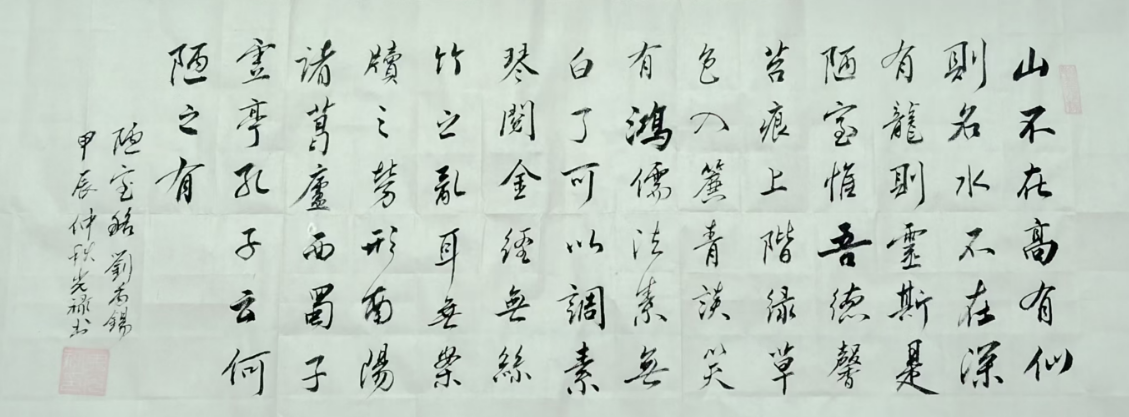 山不在高有仙
則名水不在深
有龍則靈斯是
陋室惟吾德馨
苔痕上階緑草
色入簾青談笑
有鴻儒往來無
白丁可以調素
琴閱金經無絲
竹之亂耳無案
牘之勞形南陽
諸葛廬西蜀子
雲亭孔子云何
陋之有
陋室銘劉禹錫
甲辰仲秋光禄书